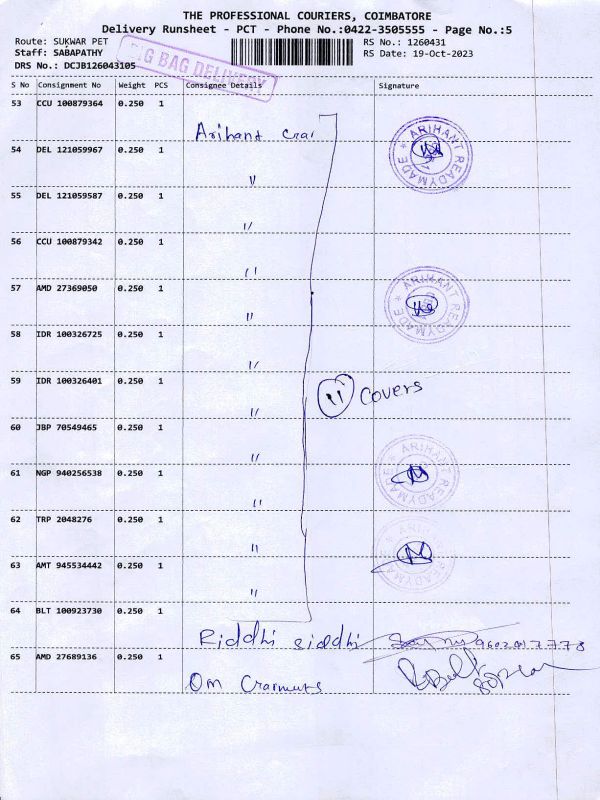 THE PROFESSIONAL COURIERS, COIMBATORE
Delivery Runsheet - PCT - Phone No.:0422-3505555 - Page No.:5
Route: SUKWAR PET
RS No.: 1260431
Staff: SABAPATHY
RS Date: 19-Oct-2023
DRS No.: DCJB126043105
BIG BAG DELIVERY
S No Consignment No Weight PCS Consignee Details Signature
53 CCU 100879364 0.250 1
Arihant
ARIHANT READYMADE
54 DEL 121059967 0.250 1
"
55 DEL 121059587 0.250 1
"
56 CCU 100879342 0.250 1
"
57 AMD 27369050 0.250 1
"
ARIHANT READYMADE
58 IDR 100326725 0.250 1
"
59 IDR 100326401 0.250 1
"
11 Covers
60 JBP 70549465 0.250 1
"
61 NGP 940256538 0.250 1
"
ARIHANT READYMADE
62 TRP 2048276 0.250 1
"
63 AMT 945534442 0.250 1
"
ARIHANT READYMADE
64 BLT 100923730 0.250 1
Riddhi siddhi
65 AMD 27689136 0.250 1
Om